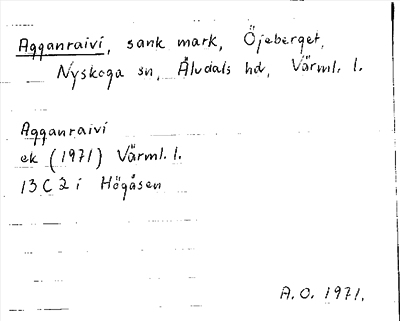 Agganraivi, sank mark, Öjeberget,
Nyskoga sn, Älvdals hd, Värml. l.
Agganraivi
ek (1971) Värml. l.
13C2i Högåsen
A.O. 1971.